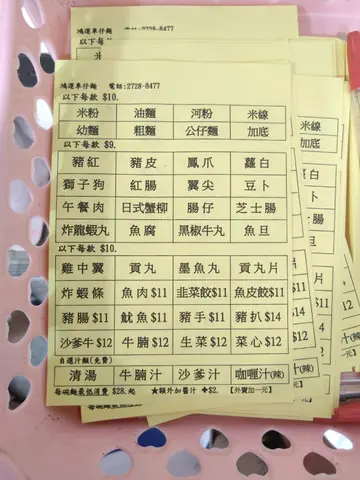 鴻運車仔麵 電話:2728-8477
以下每款 $10.
米粉 油麵 河粉 米線
幼麵 粗麵 公仔麵 加底
以下每款 $9.
豬紅 豬皮 鳳爪 蘿白
獅子狗 紅腸 翼尖 豆卜
午餐肉 日式蟹柳 腸仔 芝士腸
炸龍蝦丸 魚腐 黑椒牛丸 魚旦
以下每款 $10.
雞中翼 貢丸 墨魚丸 貢丸片
炸蝦條 魚肉 $11 韭菜餃$11 魚皮餃$11
豬腸 $11 魷魚 $11 豬手 $11 豬扒 $14
沙爹牛 $12 牛腩 $12 生菜 $12 菜心 $12
自選汁麵(免費)
清湯 牛腩汁 沙爹汁 咖喱汁(辣)
每碗麵最低消費 $28.起 ★額外加醬汁 +$2. 【外賣加一元】